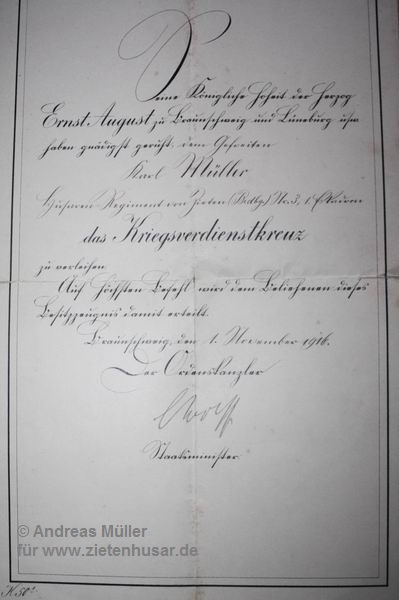 Seine Königliche Hoheit der Herzog
Ernst August zu Braunschweig und Lüneburg usw
haben gnädigst geruht, dem Gefreiten
Karl Müller
Husaren Regiment von Zieten (Brdbg) Nr. 3, 1. Eskadron
das Kriegsverdienstkreuz
zu verleihen.
Auf Höchsten Befehl wird dem Beliehenen dieses
Besitzzeugnis damit erteilt.
Braunschweig, den 1. November 1916.
Der Ordenskanzler
Staatsminister.
© Andreas Müller
für www.zietenhusar.de